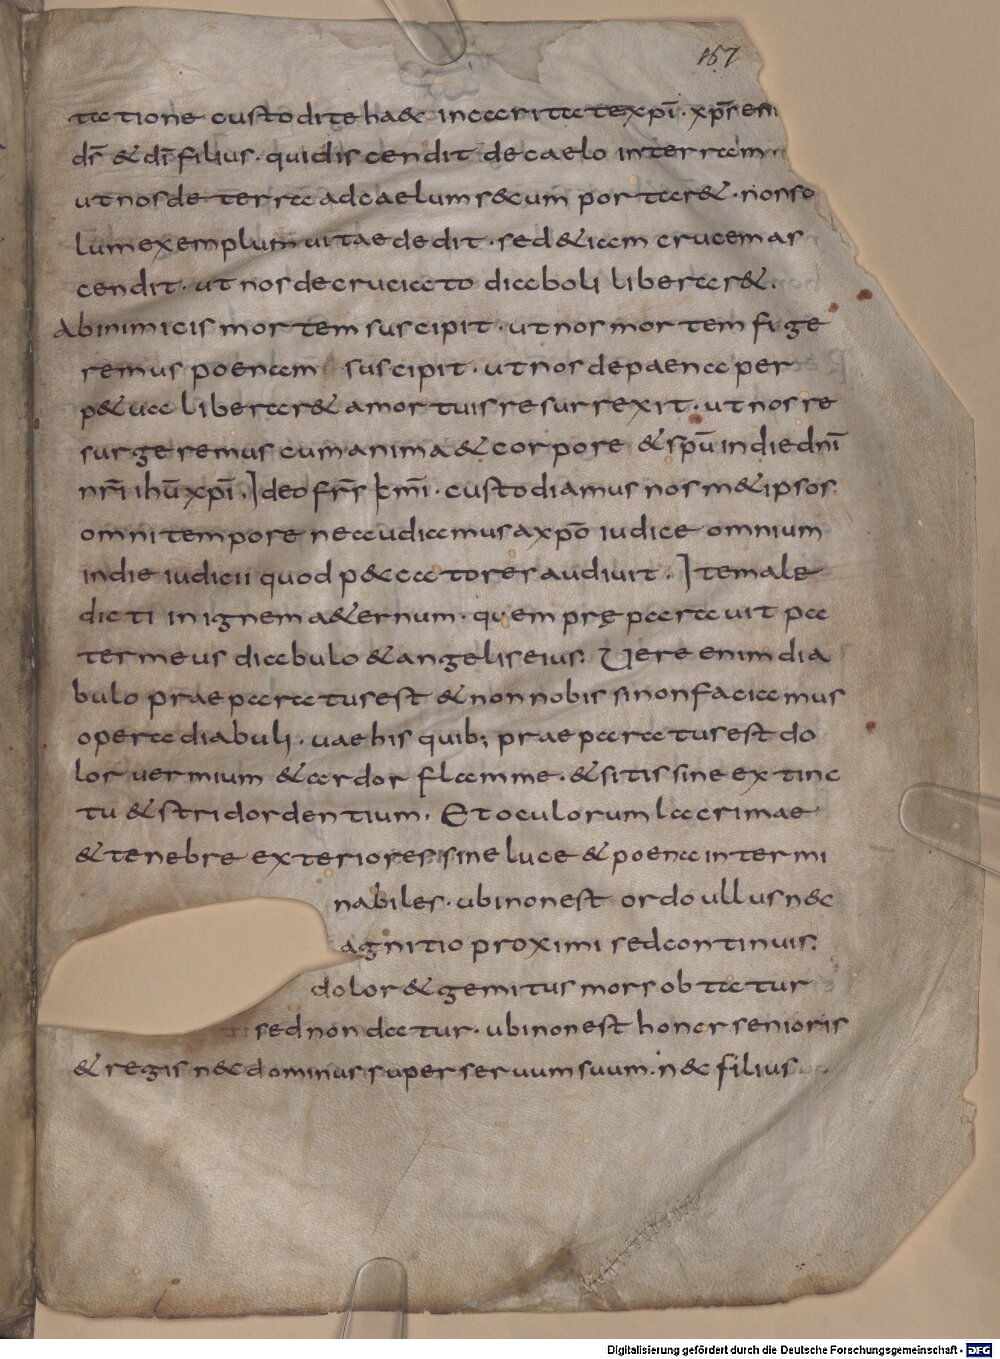 157
tatione custodite haec in caritate xpi · xps eni
ds & di filius · qui discendit de caelo in terram
ut nos de terra ad caelum secum portar& · non so
lum exemplum uitae dedit · sed & iam crucem as
cendit · ut nos de cruciato diaboli liberar& ·
Ab inimicis mortem suscipit · ut nos mortem fuge
remus poenam suscipit · ut nos de paena per
p&ua liberar& a mortuis resurrexit · ut nos re
surgeremus cum anima & corpore & spu in die dni
nri ihu xpi . Ideo frs kmi · custodiamus nos m&ipsos
omni tempore ne audiamus a xpo iudice omnium
in die iudicii quod p&catores audiuit . Ite male
dicti in ignem a&ernum · quem pręparauit pa
ter meus diabulo & angelis eius . Uere enim dia
bulo praeparatus est & non nobis si non faciamus
opera diabuli . uae his quib; praeparatus est do
lor uermium & ardor flamme · & sitis sine extinc
tu & stridor dentium . Et oculorum lacrimae
& tenebre exteriores sine luce & poena intermi
nabiles · ubi non est ordo ullus nec
agnitio proximi sed continuis
dolor & gemitus mors obtatur
sed non datur · ubi non est honor senioris
& regis nec dominus super seruum suum . nec filius
Digitalisierung gefördert durch die Deutsche Forschungsgemeinschaft - DFG